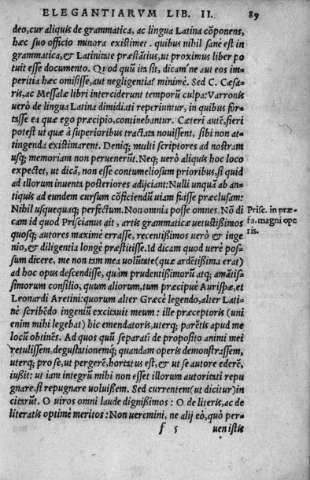 ELEGANTIARVM LIB. II. 89
deo, cur aliquis de grammatica, ac lingua Latina cōponens,
hæc suo officio minora existimet. quibus nihil sane est in
grammatica, & Latinitate præstātius, ut proximus liber po
tuit esse documento. Quod quū ita sit, dicam ne aut eos im-
peritia hæc omisisse, aut negligentia? minime. Sed C. Cæsa-
ris, ac Messalæ libri interciderunt temporū culpa: Varronis
uero de lingua Latina dimidiati reperiuntur, in quibus for-
tasse ea quæ ego præcipio, continebantur. Cæteri autē, fieri
potest ut quæ à superioribus tractata nouissent, sibi non at-
tingenda existimarent. Deniq; multi scriptores ad nostram
usq; memoriam non peruenerūt. Neq; uerò aliquis hoc loco
expectet, ut dicā, non esse contumeliosum prioribus, si quid
ad illorum inuenta posteriores adijciant: Nulli unquā ab an-
tiquis ad eundem cursum cōficiendū uiam fuisse præclusam:
Nihil usquequaq; perfectum. Non omnia posse omnes. Nō di
cam id quod Priscianus ait, artis grammaticæ uetustissimos
quosq; autores maxime errasse, recentissimos uerò & inge
nio, & diligentia longe præstitisse. Id dicam quod uere pos-
sum dicere, me non tam mea uolūtate (quæ ardētißima erat)
ad hoc opus descendisse, quàm prudentißimorū atq; amātis-
simorum consilio, quum aliorum, tum præcipue Aurispæ, et
Leonardi Aretini: quorum alter Græce legendo, alter Lati-
nè scribēdo ingeniū excitauit meum: ille præceptoris (uni
enim mihi legebat) hic emendatoris, uterq; parētis apud me
locū obtinēs. Ad quos quū separati de proposito animi mei
retulissem, degustationemq; quandam operis demonstrassem,
uterq; pro se, ut pergerē, hortatus est, & ut se autore ederē,
iußit: ut iam integrū mihi non esset illorum autoritati repu
gnare, si repugnare uoluissem. Sed currentem (ut dicitur) in
citarūt. O uiros omni laude dignißimos: O de literis, ac de
literatis optime meritos: Non uereminī, ne alij eò, quò per-
f 5 uenistis
Prisc. in præ-
fa. magni ope
ris.